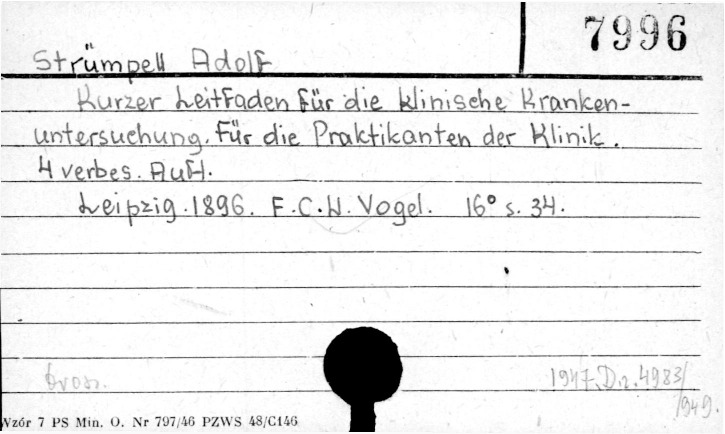 7996
Strümpell Adolf
Kurzer Leitfaden für die klinische Kranken-
untersuchung. Für die Praktikanten der Klinik.
4 verbes. Aufl.
Leipzig. 1896. F.C.W. Vogel. 16° s. 34.
brosz.
1947. Dz. 4983/
1949.
Wzór 7 PS Min. O. Nr 797/46 PZWS 48/C146